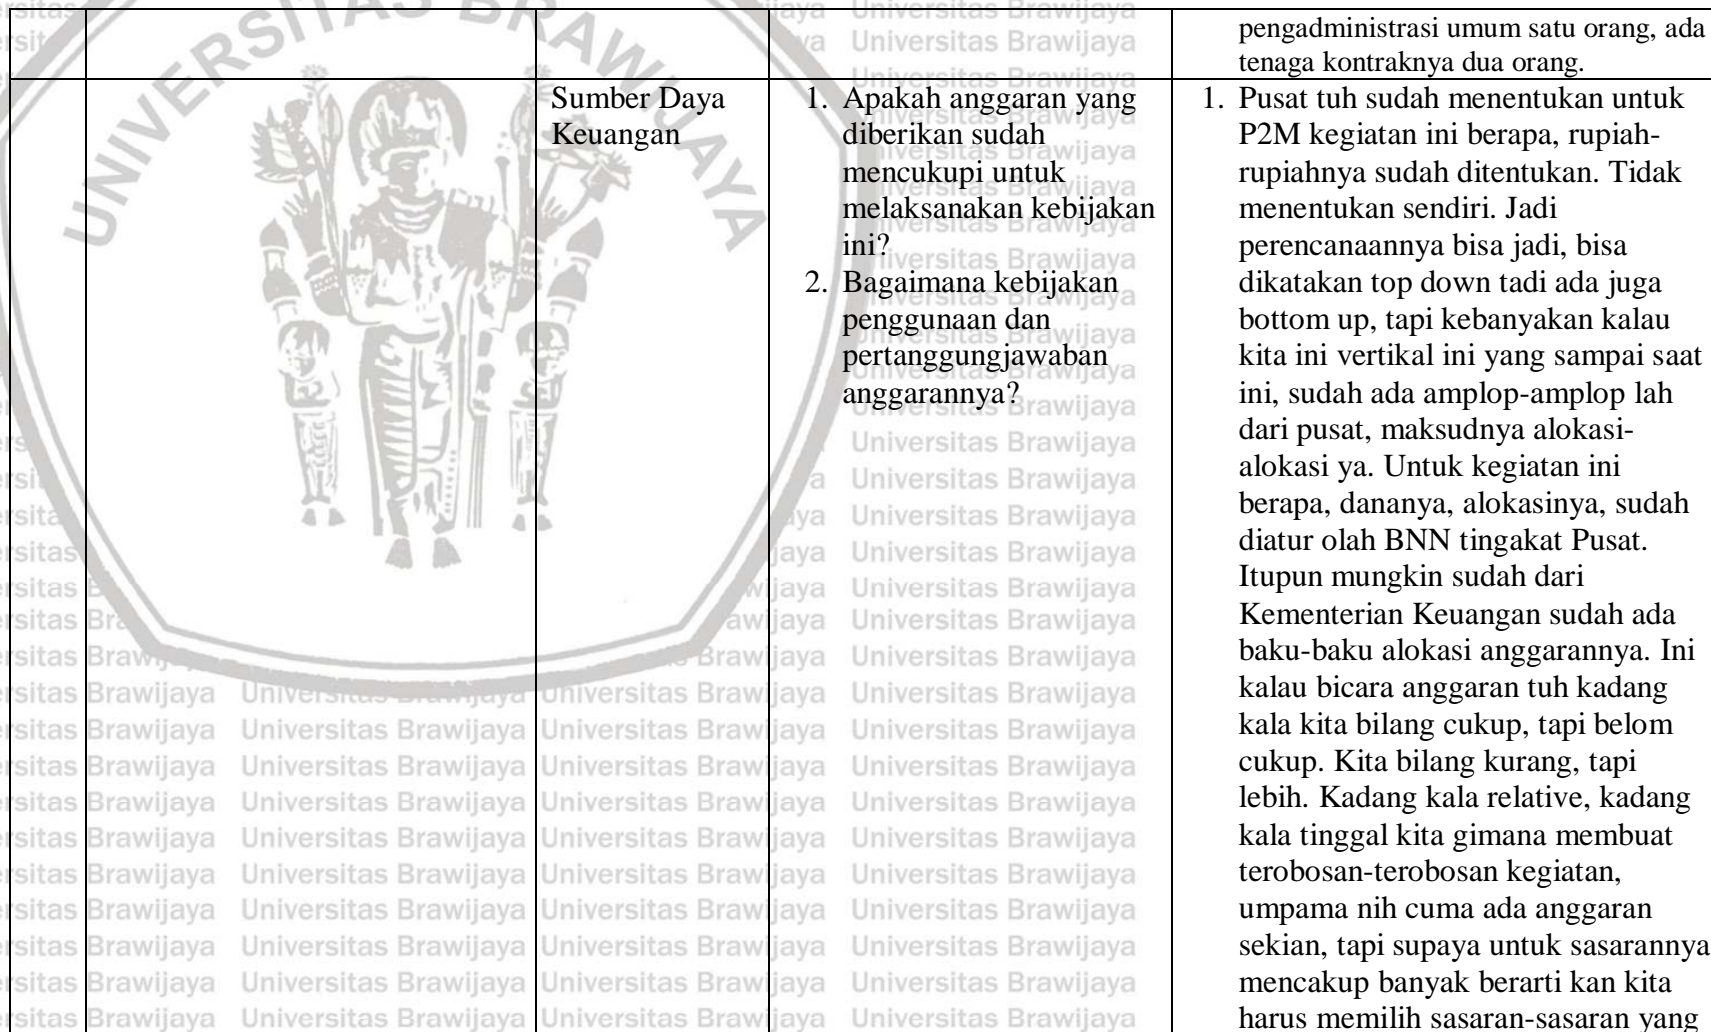 pengadministrasi umum satu orang, ada
tenaga kontraknya dua orang.
Sumber Daya
Keuangan
1. Apakah anggaran yang
diberikan sudah
mencukupi untuk
melaksanakan kebijakan
ini?
2. Bagaimana kebijakan
penggunaan dan
pertanggungjawaban
anggarannya?
1. Pusat tuh sudah menentukan untuk
P2M kegiatan ini berapa, rupiah-
rupiahnya sudah ditentukan. Tidak
menentukan sendiri. Jadi
perencanaannya bisa jadi, bisa
dikatakan top down tadi ada juga
bottom up, tapi kebanyakan kalau
kita ini vertikal ini yang sampai saat
ini, sudah ada amplop-amplop lah
dari pusat, maksudnya alokasi-
alokasi ya. Untuk kegiatan ini
berapa, dananya, alokasinya, sudah
diatur olah BNN tingakat Pusat.
Itupun mungkin sudah dari
Kementerian Keuangan sudah ada
baku-baku alokasi anggarannya. Ini
kalau bicara anggaran tuh kadang
kala kita bilang cukup, tapi belom
cukup. Kita bilang kurang, tapi
lebih. Kadang kala relative, kadang
kala tinggal kita gimana membuat
terobosan-terobosan kegiatan,
umpama nih cuma ada anggaran
sekian, tapi supaya untuk sasarannya
mencakup banyak berarti kan kita
harus memilih sasaran-sasaran yang
UNIVERSITAS BRAWIJAYA
Universitas Brawijaya